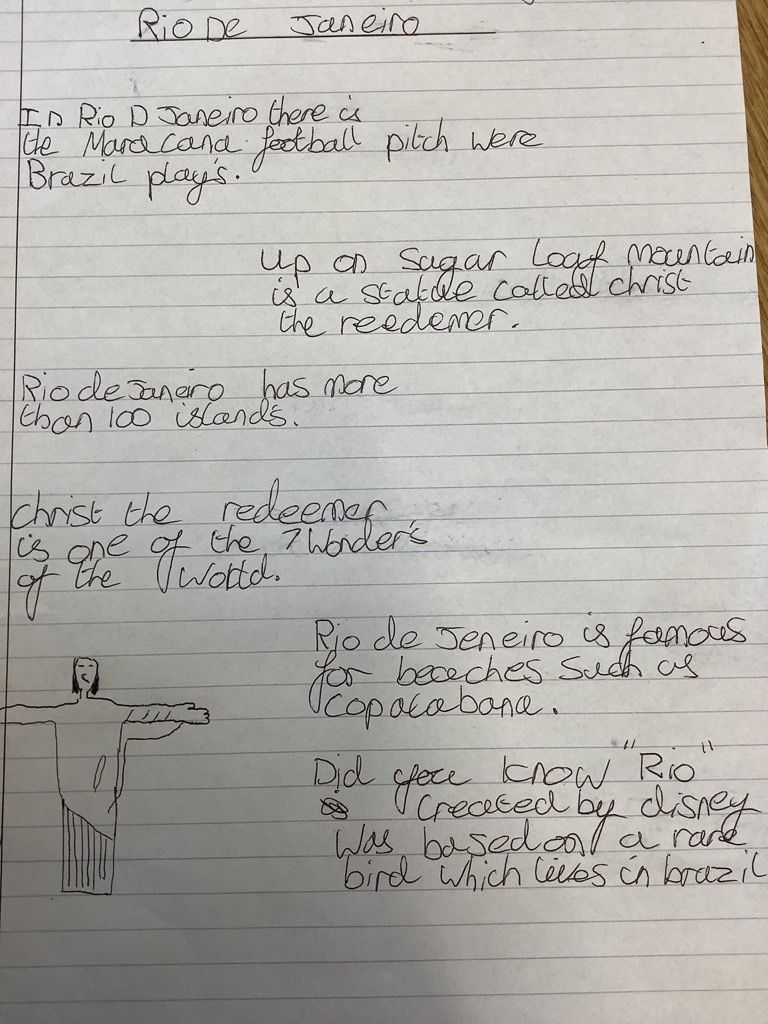 Rio De Janeiro
In Rio D Janeiro there is
the Maracana football pitch were
Brazil play's.
Up on Sugar Loaf Mountain
is a statue called christ
the reedemer.
Rio de Janeiro has more
than 100 islands.
Christ the redeemer
is one of the 7 Wonder's
of the World.
Rio de Jeneiro is famous
for beaches such as
Copacabana.
Did you know "Rio"
created by disney
was based on a rare
bird which lives in brazil